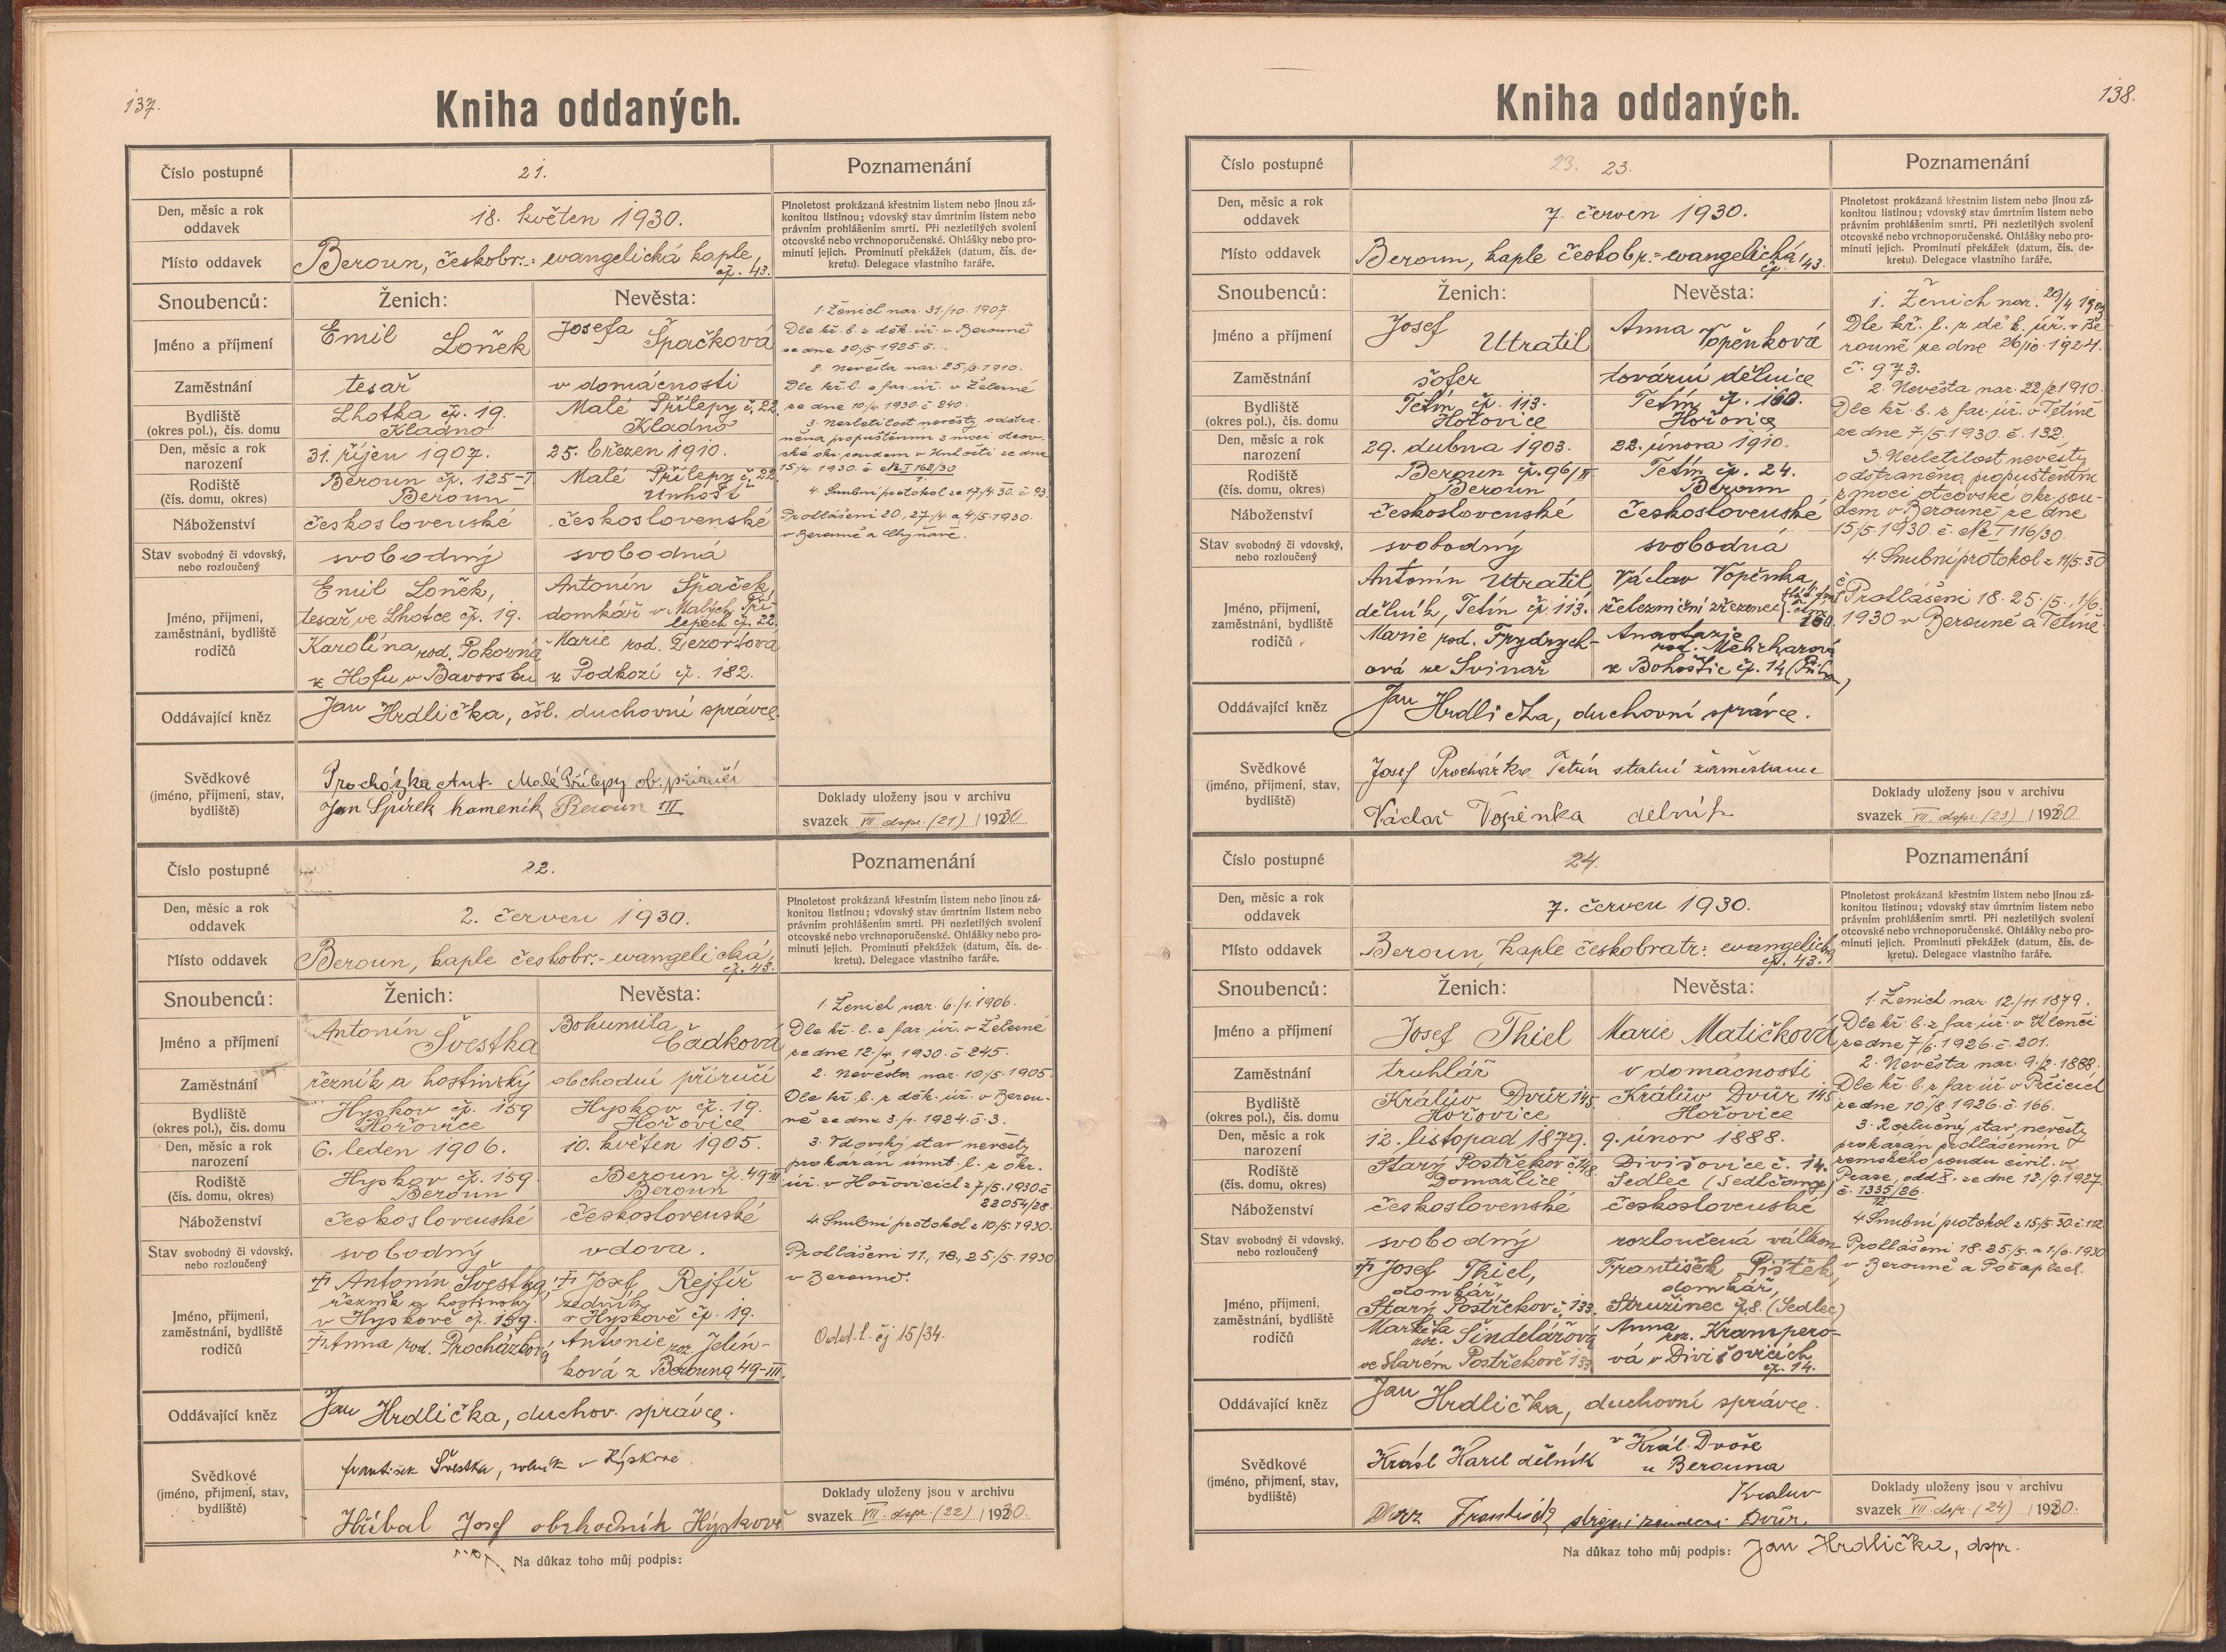 137.
Kniha oddaných.
Číslo postupné
21.
Poznamenání
Den, měsíc a rok
oddavek
18. květen 1930.
Plnoletost prokázaná křestním listem nebo jinou zá-
konitou listinou; vdovský stav úmrtním listem nebo
právním prohlášením smrti. Při nezletilých svolení
otcovské nebo vrchnoporučenské. Ohlášky nebo pro-
minutí jejich. Prominutí překážek (datum, čís. de-
kretu). Delegace vlastního faráře.
Místo oddavek
Beroun, českobr.: evangelická kaple,
čp. 43.
Snoubenců:
Ženich:
Nevěsta:
Jméno a příjmení
Emil Loňek
Josefa Špačková
Zaměstnání
tesař
v domácnosti
Bydliště
(okres pol.), čís. domu
Lhotka čp. 19.
Kladno
Malé Přílepy č. 22.
Kladno
Den, měsíc a rok
narození
31. říjen 1907.
25. březen 1910.
Rodiště
(čís. domu, okres)
Beroun čp. 125-I.
Beroun
Malé Přílepy č. 22.
Unhošť
Náboženství
československé
československé
Stav svobodný či vdovský,
nebo rozloučený
svobodný
svobodná
Jméno, příjmení,
zaměstnání, bydliště
rodičů
Emil Loňek,
tesař ve Lhotce čp. 19.
Karolína rod. Pokorná
z Hofu v Bavorsku
Antonín Špaček,
domkář v Malých Pří-
lepech čp. 22.
Marie rod.
z Podkozí čp. 182.
1. Ženich nar. 31/10. 1907.
Dle kř. l. z děk. úř. v Berouně
ze dne 20/5 1925 č.
2. Nevěsta nar. 25/3. 1910.
Dle kř. l. z far. úř. v Železné
ze dne 10/4. 1930. č. 240.
3. Nezletilost nevěsty odstra-
něna propuštěním z moci otcov-
ské okr. soudem v Unhošti ze dne
15/4. 1930. č. Nc I 162/30
4. Snubní protokol ze 17/4. 30. č. 93.
Prohlášeni 20., 27./4. a 4/5. 1930.
v Berouně a Chyňavě.
Oddávající kněz
Jan Hrdlička, čsl. duchovní správce.
Svědkové
(jméno, příjmení, stav,
bydliště)
Procházka Ant. Malé Přílepy ob. příručí
Jan Spírek kameník Beroun III
Doklady uloženy jsou v archivu
svazek VII. dspr. (21) / 1930
Číslo postupné
22.
Poznamenání
Den, měsíc a rok
oddavek
2. červen 1930.
Plnoletost prokázaná křestním listem nebo jinou zá-
konitou listinou; vdovský stav úmrtním listem nebo
právním prohlášením smrti. Při nezletilých svolení
otcovské nebo vrchnoporučenské. Ohlášky nebo pro-
minutí jejich. Prominutí překážek (datum, čís. de-
kretu). Delegace vlastního faráře.
Místo oddavek
Beroun, kaple českobr.-evangelická,
čp. 43.
Snoubenců:
Ženich:
Nevěsta:
Jméno a příjmení
Antonín Švestka
Bohumila Čadková
Zaměstnání
řezník a hostinský
obchodní příručí
Bydliště
(okres pol.), čís. domu
Hyskov čp. 159
Hořovice
Hyskov čp. 19.
Hořovice
Den, měsíc a rok
narození
6. leden 1906.
10. květen 1905.
Rodiště
(čís. domu, okres)
Hyskov čp. 159.
Beroun
Beroun čp. 49 III
Beroun
Náboženství
československé
československé
Stav svobodný či vdovský,
nebo rozloučený
svobodný
vdova.
Jméno, příjmení,
zaměstnání, bydliště
rodičů
† Antonín Švestka,
řezník a hostinský
v Hyskově čp. 159.
† Anna rod. Procházková
† Josef Rejfíř
zedník
v Hyskově čp. 19.
Antonie roz. Jelín-
ková z Berouna 49-III.
1. Ženich nar. 6./1. 1906.
Dle kř. l. z far. úř. v Železné
ze dne 12./4. 1930. č. 245.
2. Nevěsta nar. 10./5. 1905.
Dle kř. l. z děk. úř. v Berou-
ně ze dne 3./1. 1924. č. 3.
3. Vdovský stav nevěsty
prokázán úmrt. l. z okr.
úř. v Hořovicích z 7/5. 1930. č.
22054/28.
4. Snubní protokol z 10/5. 1930.
Prohlášeni 11., 18., 25./5. 1930
v Berouně.
Odd. l. čj 15/34.
Oddávající kněz
Jan Hrdlička, duchov. správce.
Svědkové
(jméno, příjmení, stav,
bydliště)
František Švestka, rolník v Hýskově
Hříbal Josef obchodník Hýskově
Doklady uloženy jsou v archivu
svazek VII. dspr. (22) / 1930.
Na důkaz toho můj podpis:
138.
Kniha oddaných.
Číslo postupné
23. 23.
Poznamenání
Den, měsíc a rok
oddavek
7. červen 1930.
Plnoletost prokázaná křestním listem nebo jinou zá-
konitou listinou; vdovský stav úmrtním listem nebo
právním prohlášením smrti. Při nezletilých svolení
otcovské nebo vrchnoporučenské. Ohlášky nebo pro-
minutí jejich. Prominutí překážek (datum, čís. de-
kretu). Delegace vlastního faráře.
Místo oddavek
Beroun, kaple českobr.= evangelická,
čp. 43.
Snoubenců:
Ženich:
Nevěsta:
Jméno a příjmení
Josef Utratil
Anna Vopěnková
Zaměstnání
šofer
tovární dělnice
Bydliště
(okres pol.), čís. domu
Tetín čp. 113.
Hořovice
Tetín čp. 160.
Hořovice
Den, měsíc a rok
narození
29. dubna 1903.
22. února 1910.
Rodiště
(čís. domu, okres)
Beroun čp. 96/II
Beroun
Tetín čp. 24.
Beroun
Náboženství
československé
československé
Stav svobodný či vdovský,
nebo rozloučený
svobodný
svobodná
Jméno, příjmení,
zaměstnání, bydliště
rodičů
Antonín Utratil
dělník, Tetín čp. 113.
Marie rod. Frydrych-
ová ze Svinař
Václav Vopěnka,
železniční zřízenec
160.
Anastazie
rod.
z Bohostic čp. 14
1. Ženich nar. 29/4 1903
Dle kř. l. z děk. úř. v Be-
rouně ze dne 26/10. 1924.
č. 973.
2. Nevěsta nar. 22/2 1910.
Dle kř. l. z far. úř. v Tetíně
ze dne 7./5. 1930. č. 132.
3. Nezletilost nevěsty
odstraněna propuštěním
z moci otcovské okr. sou-
dem v Berouně ze dne
15/5. 1930. č. Nc I 116/30.
4. Snubní protokol z 11/5. 30
Prohlášeni 18. 25/5., 1/6.
1930 v Berouně a Tetíně.
Oddávající kněz
Jan Hrdlička, duchovní správce.
Svědkové
(jméno, příjmení, stav,
bydliště)
Josef Procházka Tetín statní zaměstnanec
Václav Vopěnka dělník
Doklady uloženy jsou v archivu
svazek VII. dspr. (23) / 1930.
Číslo postupné
24.
Poznamenání
Den, měsíc a rok
oddavek
7. červen 1930.
Plnoletost prokázaná křestním listem nebo jinou zá-
konitou listinou; vdovský stav úmrtním listem nebo
právním prohlášením smrti. Při nezletilých svolení
otcovské nebo vrchnoporučenské. Ohlášky nebo pro-
minutí jejich. Prominutí překážek (datum, čís. de-
kretu). Delegace vlastního faráře.
Místo oddavek
Beroun, kaple českobratr: evangelická
čp. 43.
Snoubenců:
Ženich:
Nevěsta:
Jméno a příjmení
Josef Thiel
Marie Matičková
Zaměstnání
truhlář
v domácnosti
Bydliště
(okres pol.), čís. domu
Králův Dvůr 145.
Hořovice
Králův Dvůr 145
Hořovice
Den, měsíc a rok
narození
12. listopad 1879.
9. únor 1888.
Rodiště
(čís. domu, okres)
Starý Postřekov č. 148.
Domažlice
Divišovice č. 14.
Sedlec (Sedlčany)
Náboženství
československé
československé
Stav svobodný či vdovský,
nebo rozloučený
svobodný
rozloučená válkou
Jméno, příjmení,
zaměstnání, bydliště
rodičů
† Josef Thiel,
domkář,
Starý Postřekov č. 133.
Markéta
roz. Šindelářová
ve Starém Postřekově 133
František Pištěk,
domkář,
Stružinec čp. 8. (Sedlec)
Anna
roz. Krampero-
vá v Divišovicích
čp. 14.
1. Ženich nar. 12/11. 1879.
Dle kř. l. z far. úř. v Klenčí
ze dne 7/6. 1926. č. 201.
2. Nevěsta nar. 9/2. 1888.
Dle kř. l. z far. úř. v Prčicích
ze dne 10/8. 1926. č. 166.
3. Rozlučný stav nevěsty
prokázán prohlášením
zemského soudu civil. v
Praze, odd X. ze dne 12./9. 1927.
č. 1335/26.
12
4. Snubní protokol z 15/5. 30. č. 112
Prohlášeni 18. 25./5. a 1./6. 1930
v Berouně a Počaplech.
Oddávající kněz
Jan Hrdlička, duchovní správce.
Svědkové
(jméno, příjmení, stav,
bydliště)
Krásl Karel dělník v Král. Dvoře
u Berouna
Králův
František Dvůr.
Doklady uloženy jsou v archivu
svazek VII. dspr. (24) / 1930.
Na důkaz toho můj podpis: Jan Hrdlička, dspr.